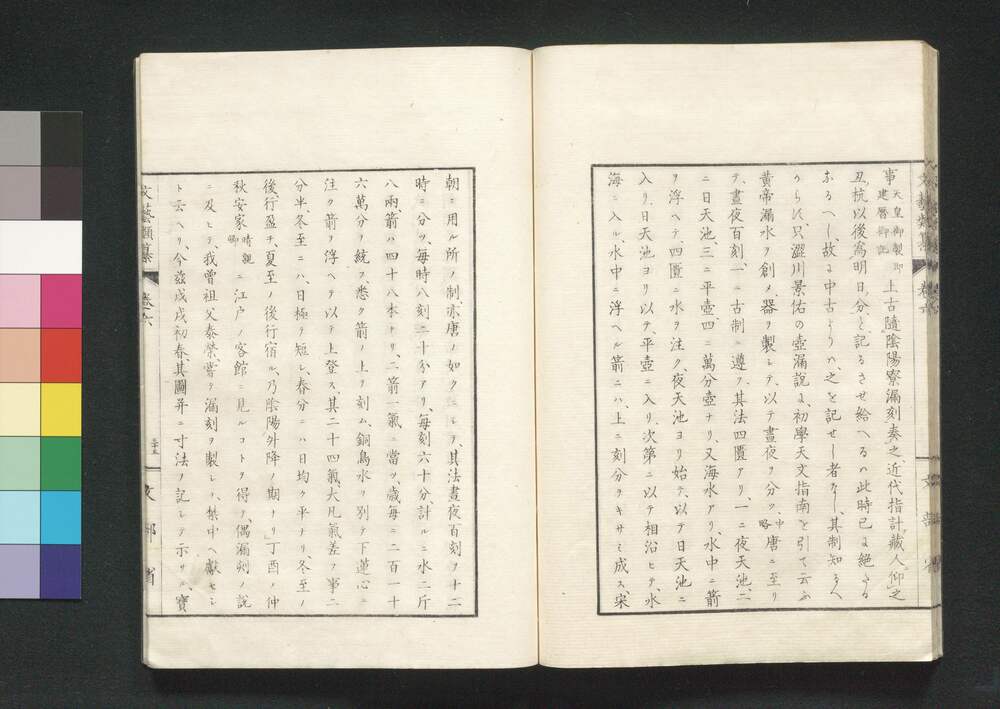 事 天皇御製卽建暦御記 上古隨陰陽寮漏刻奏之、近代指計藏人仰之
丑杭以後爲明日分と記るさせ給へるハ此時已よ絶たる
なるへし、故に中古よりハ之を記せし者なし、其制知るへ
からす只澁川景佑の壺漏説よ初學天文指南を引て云ふ
黄帝漏水ヲ創メ器ヲ製シテ、以テ晝夜ヲ分ツ、中略 唐ニ至リ
テ、晝夜百刻、一ニ古制ニ遵フ、其法四匱アリ、一ニ夜天池、二
ニ日天池、三ニ平壺、四ニ萬分壺ナリ、又海水アリ、水中ニ箭
ヲ浮ヘテ、四匱ニ水ヲ注ク、夜天池ヨリ始テ、以テ日天池ニ
入リ、日天池ヨリ以テ、平壺ニ入リ、次第ニ以テ相沿ヒテ、水
海ニ入ル、水中ニ浮ヘル箭ニハ、上ニ刻分ヲキサミ成ス、宋
朝ニ用ル所ノ制、亦唐ノ如クニシテ、其法晝夜百刻ヲ十二
時ニ分ツ、毎時八刻二十分アリ、毎刻六十分計ルニ水二斤
八兩箭ハ四十八本トリ、二箭一氣ニ當ツ、歳毎ニ二百一十
六萬分ヲ統ス、悉ク箭ノ上ヲ刻ム、銅烏水ヲ引テ下蓮心ニ
注ク箭ヲ浮ヘテ以テ上登ス、其二十四氣、大凡氣差ノ事二
分半、冬至ニハ、日極テ短シ、春分ニハ日均ク平ナリ、冬至ノ
後行盈チ、夏至ノ後行宿ル、乃陰陽外降ノ期ナリ、丁酉ノ仲
秋安家 晴親卿 ニ江戸ノ客館ニ見ルコトヲ得テ、偶漏刻ノ説
ニ及ヒテ、我曾祖父泰榮、嘗テ漏刻ヲ製シテ、禁中ヘ獻セシ
ト云ヘリ、今玆戊戌初春、其圖幷ニ寸法ヲ記シテ示サル、寶
文藝類纂 卷六
三十五
文部省